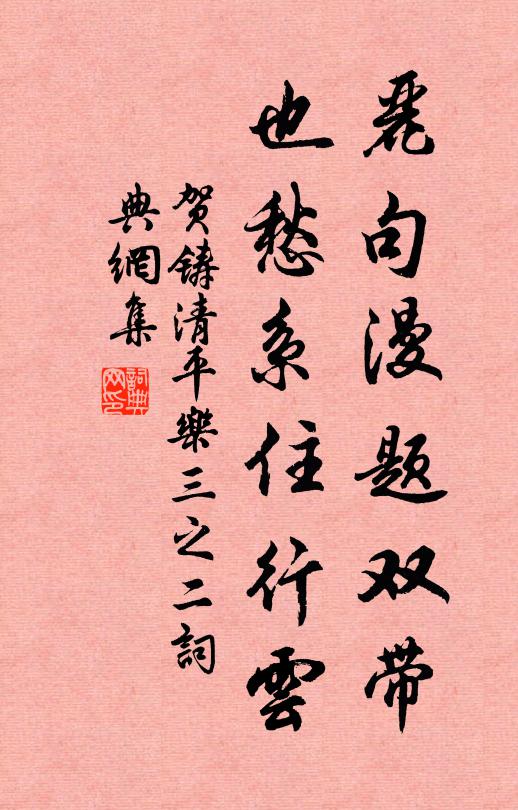 麗句漫题双带
也愁系住行雲
贺鑄清平樂三之二詞
典網集
詞典网印